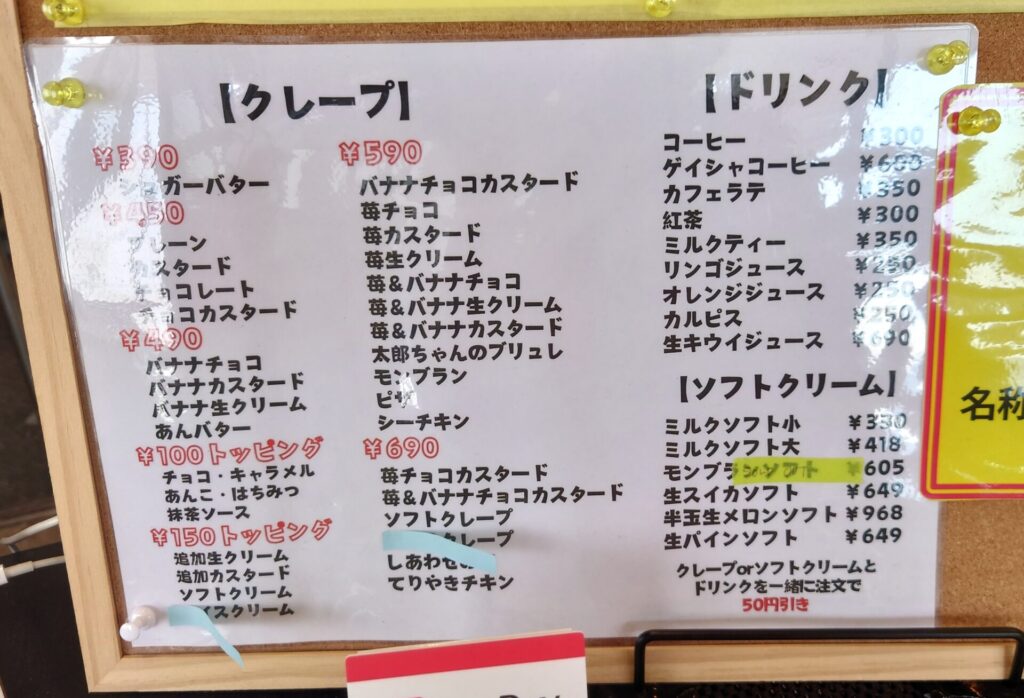 【クレープ】
¥390
シュガーバター
¥450
プレーン
カスタード
チョコレート
チョコカスタード
¥490
バナナチョコ
バナナカスタード
バナナ生クリーム
あんバター
¥100トッピング
チョコ・キャラメル
あんこ・はちみつ
抹茶ソース
¥150トッピング
追加生クリーム
追加カスタード
ソフトクリーム
イスクリーム
¥590
バナナチョコカスタード
苺チョコ
苺カスタード
苺生クリーム
苺&バナナチョコ
苺&バナナ生クリーム
苺&バナナカスタード
太郎ちゃんのブリュレ
モンブラン
ピザ
シーチキン
¥690
苺チョコカスタード
苺&バナナチョコカスタード
ソフトクレープ
クレープ
しあわせ
てりやきチキン
【ドリンク】
コーヒー ¥300
ゲイシャコーヒー ¥680
カフェラテ ¥350
紅茶 ¥300
ミルクティー ¥350
リンゴジュース ¥250
オレンジジュース ¥250
カルピス ¥250
生キウイジュース ¥690
【ソフトクリーム】
ミルクソフト小 ¥330
ミルクソフト大 ¥418
モンブランソフト ¥605
生スイカソフト ¥649
半玉生メロンソフト ¥968
生パインソフト ¥649
クレープorソフトクリームと
ドリンクを一緒に注文で
50円引き
名称